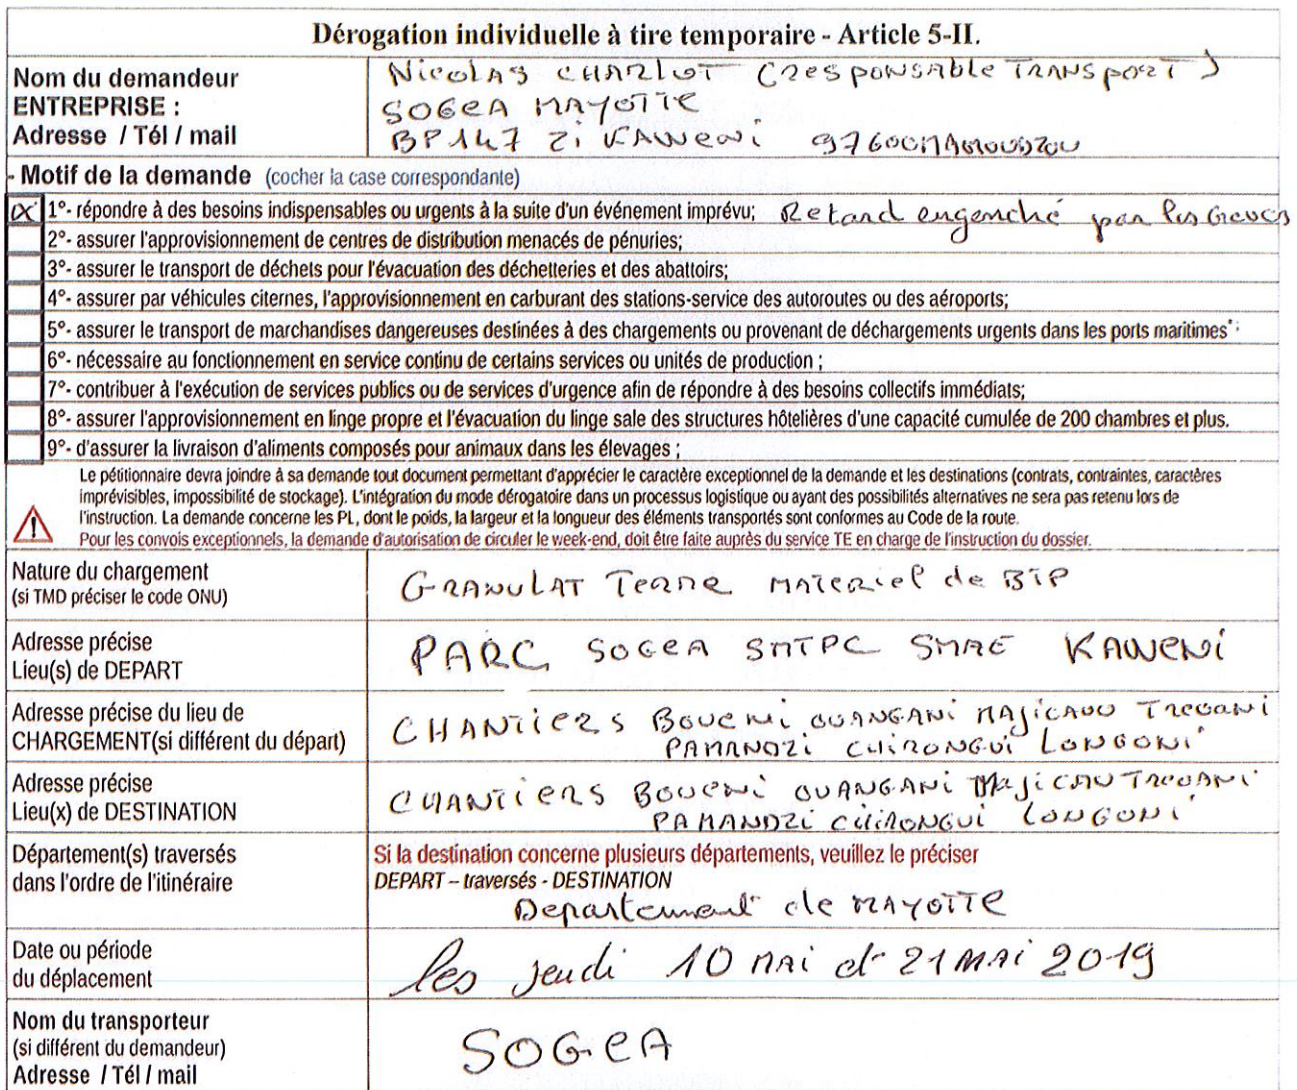 Dérogation individuelle à tire temporaire - Article 5-II.
Nom du demandeur
ENTREPRISE :
Adresse / Tél / mail
Nicolas CHARLOT (responsable TRANSPORT)
SOGEA MAYOTTE
BP 147 Zi KAWENI 97600 MAMOUDZOU
- Motif de la demande (cocher la case correspondante)
x 1°- répondre à des besoins indispensables ou urgents à la suite d'un événement imprévu; Retard engenché par les Greves
2°- assurer l'approvisionnement de centres de distribution menacés de pénuries;
3°- assurer le transport de déchets pour l'évacuation des déchetteries et des abattoirs;
4°- assurer par véhicules citernes, l'approvisionnement en carburant des stations-service des autoroutes ou des aéroports;
5°- assurer le transport de marchandises dangereuses destinées à des chargements ou provenant de déchargements urgents dans les ports maritimes*;
6°- nécessaire au fonctionnement en service continu de certains services ou unités de production ;
7°- contribuer à l'exécution de services publics ou de services d'urgence afin de répondre à des besoins collectifs immédiats;
8°- assurer l'approvisionnement en linge propre et l'évacuation du linge sale des structures hôtelières d'une capacité cumulée de 200 chambres et plus.
9°- d'assurer la livraison d'aliments composés pour animaux dans les élevages ;
Le pétitionnaire devra joindre à sa demande tout document permettant d'apprécier le caractère exceptionnel de la demande et les destinations (contrats, contraintes, caractères
imprévisibles, impossibilité de stockage). L'intégration du mode dérogatoire dans un processus logistique ou ayant des possibilités alternatives ne sera pas retenu lors de
l'instruction. La demande concerne les PL, dont le poids, la largeur et la longueur des éléments transportés sont conformes au Code de la route.
Pour les convois exceptionnels, la demande d'autorisation de circuler le week-end, doit être faite auprès du service TE en charge de l'instruction du dossier.
Nature du chargement
(si TMD préciser le code ONU)
GRANULAT Terre MATERIEL de BTP
Adresse précise
Lieu(s) de DEPART
PARC SOGEA SMTPC SMAE KAWENI
Adresse précise du lieu de
CHARGEMENT(si différent du départ)
CHANTIERS BOUENI OUANGANI MAJICAVO TREVANI
PAMANDZI CHIRONGUI LONGONI
Adresse précise
Lieu(x) de DESTINATION
CHANTIERS BOUENI OUANGANI MAJICAVO TREVANI
PAMANDZI CHIRONGUI LONGONI
Département(s) traversés
dans l'ordre de l'itinéraire
Si la destination concerne plusieurs départements, veuillez le préciser
DEPART – traversés - DESTINATION
Departement de MAYOTTE
Date ou période
du déplacement
les jeudi 10 MAI et 21 MAI 2019
Nom du transporteur
(si différent du demandeur)
Adresse / Tél / mail
SOGEA